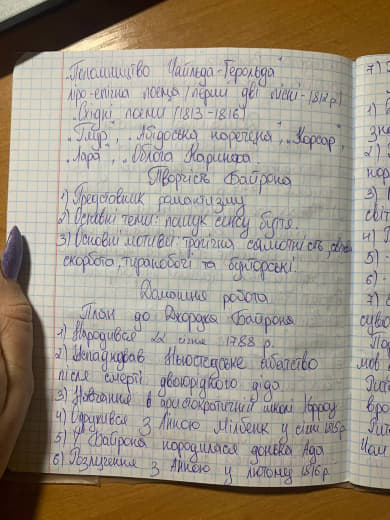 „Паломництво Чайльда-Герольда"
ліро-епічна поема (перші дві пісні - 1812 р.)
„Східні поеми" (1813-1816)
„Гяур", „Абідоська наречена", „Корсар",
„Лара", „Облога Коринфа".
Творчість Байрона
1) Представник романтизму
2) Основні теми: пошук сенсу буття.
3) Основні мотиви: трагічна самотність, світова
скорбота, тираноборчі та бунторські.
Домашня робота
План до Джорджа Байрона
1) Народився 22 січня 1788 р.
2) Успадкував Ньюстедське абатство
після смерті двоюрідного діда
3) Навчання в аристократичній школі Харроу
4) Одружився З Анною Мілбенк у січні 1815р.
5) У Байрона народилася донька Ада
6) Розлучення З Анною у лютому 1816 р.
7)
1)
2)
3)
4)
5)
6)
7)